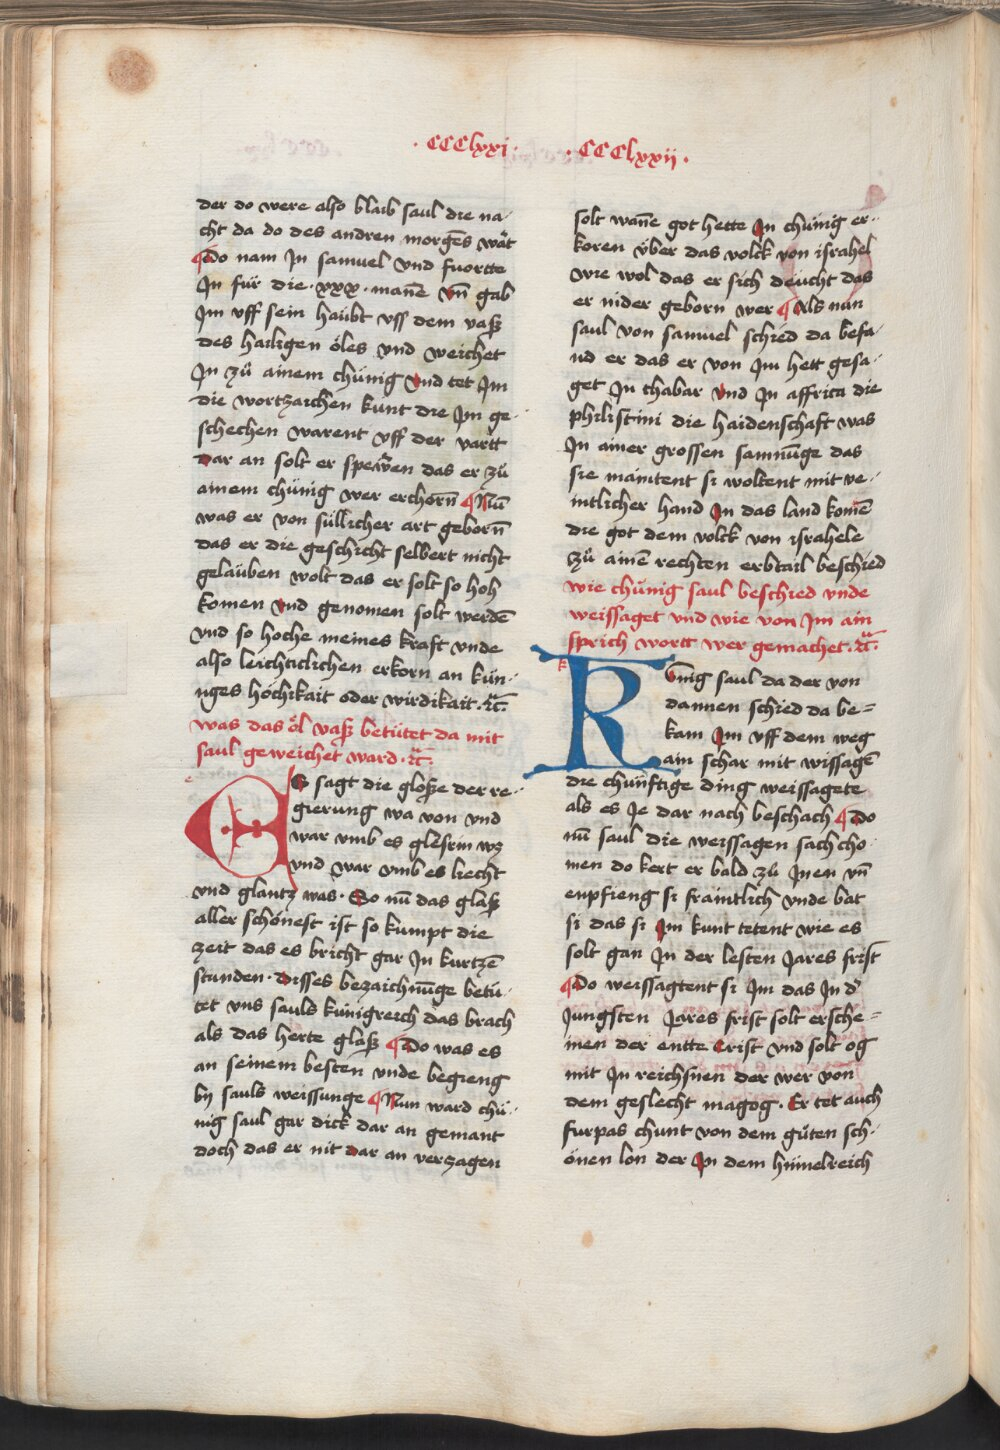 · CCClxxi ·
der do were also blaib saul die na-
cht da do des andren morgēs wāt
¶Do nam Jn samuel vnd fuortte
Jn für die · xxx · manē vn̄ gab
Jm vff sein haubt vss dem vasz
des hailigen öles vnd weichet
Jn zů ainem chünig vnd tet Jm
die wortzaichen kunt die Jm ge-
schechen warent vff der vartt
dar an solt er spewͤen das er zů
ainem chünig wer erchorn̄ ¶Nun
was er von süllicher art geborn̄
das er die geschicht selbert nicht
gelauben wolt das er solt so hoh
komen vnd genomen solt werdē
vnd so hoche meines kraft vnde
also leichticlichen erkorn an kün-
niges höchikait oder wirdikait · ꝛc̄
was das öl vasz betütet da mit
saul geweichet ward · ꝛc̄
e
ES sagt die glosze der re-
gierung wa von vnd
war vmb es gleſrin wz
vnd war vmb es liecht
vnd glantz was · So nū das glasz
aller schönest ist so kumpt die
zeit das es bricht gar Jn kurtzē
stunden · disses bezaichnūge betü-
tet vns sauls künigreich das brach
als das herte glasz ¶Do was es
an seinem besten vnde begieng
by sauls weissunge ¶Nun ward chü-
nig saul gar dick dar an gemant
doch das er nit dar an verzagen
· CCClxxii ·
solt wan̄e got hette Jn chünig er-
koren v̈ber das volck von israhel
wie wol das er sich deücht das
er nider geborn wer ¶Als nun
saul von samuel schied da befa-
nd er das er von Jm hett gesa-
get Jn thabar vnd Jn affrica die
philistini die haidenschaft was
Jn ainer grossen samnūge das
sie maintent si woltent mit ve-
intlicher hand Jn das land komē
die got dem volck von israhele
zů ainē rechten erbtail beschied
wie chünig saul beschied vnde
weissaget vnd wie von Jm ain
sprich wortt wer gemachet · ꝛc̄
k
Künig saul da der von
dannen schied da be=
kam Jm vff dem weg
ain schar mit wissagē
die chünftige ding weissagete
als es Je dar nach beschach ¶Do
nū saul die weissagen sach cho-
men do kert er bald zů Jnen vn̄
enpfieng si fraintlich vnde bat
si das si Jm kunt tetent wie es
solt gan Jn der lesten Jares frist
¶Do weissagtent si Jm das Jn d'
Jungsten Jares frist solt ersche=
inen der entte Crist vnd solt og
mit Jn reichsnen der wer von
dem geslecht magog · Er tet auch
furpas chunt von dem gůten sch-
önen lon der Jn dem himelreich